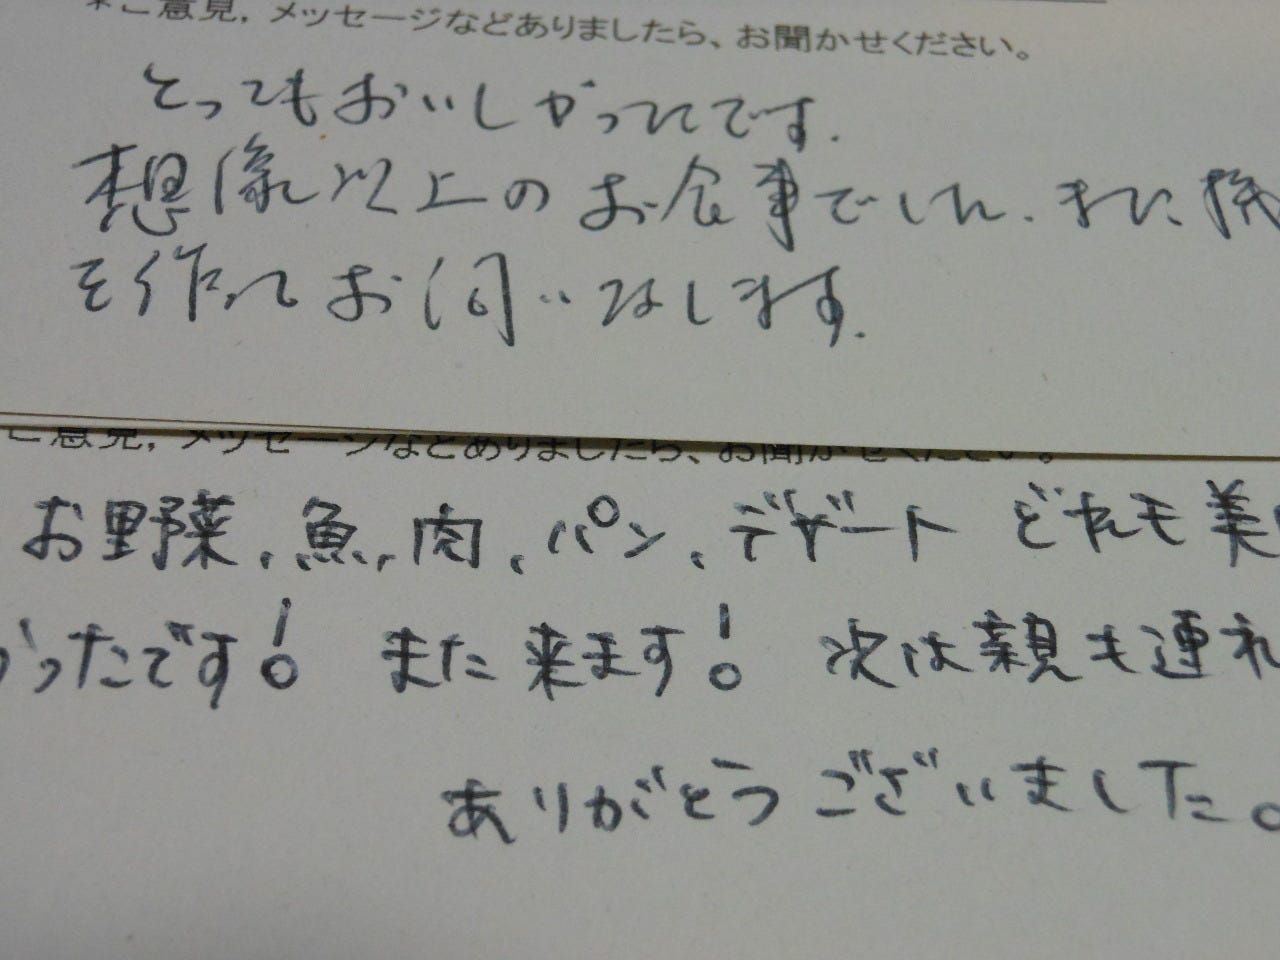 *ご意見，メッセージなどありましたら、お聞かせください。
とってもおいしかったです.
想像以上のお食事でした. また機
を作ってお伺いなします.
ご意見，メッセージなどありましたら、お聞かせください。
お野菜、魚、肉、パン、デザート どれも美
かったです! また来ます! 次は親も連れ
ありがとうございました。